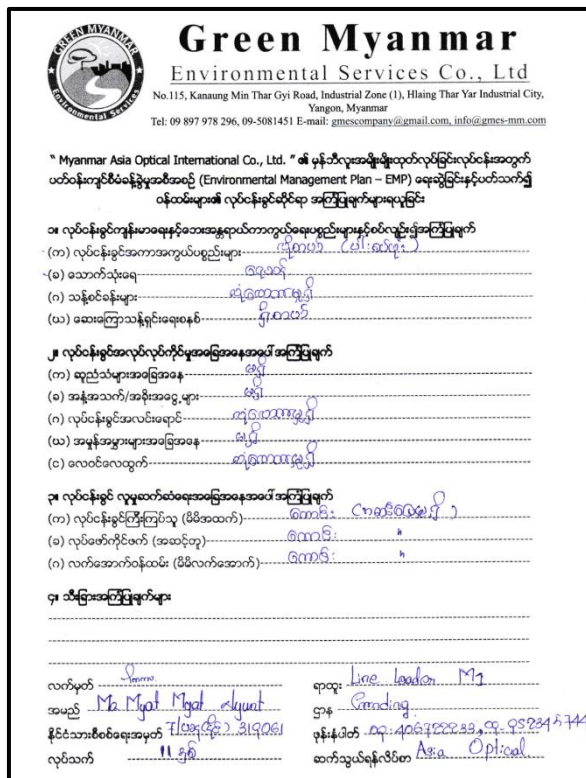 GREEN MYANMAR
Environmental Services
Green Myanmar
Environmental Services Co., Ltd
No.115, Kanaung Min Thar Gyi Road, Industrial Zone (1), Hlaing Thar Yar Industrial City,
Yangon, Myanmar
Tel: 09 897 978 296, 09-5081451 E-mail: gmescompany@gmail.com, info@gmes-mm.com
" Myanmar Asia Optical International Co., Ltd. " ၏ မှန်ဘီလူးအမျိုးမျိုးထုတ်လုပ်ခြင်းလုပ်ငန်းအတွက်
ပတ်ဝန်းကျင်စီမံခန့်ခွဲမှုအစီအစဉ် (Environmental Management Plan – EMP) ရေးဆွဲခြင်းနှင့်ပတ်သက်၍
ဝန်ထမ်းများ၏ လုပ်ငန်းခွင်ဆိုင်ရာ အကြံပြုချက်များရယူခြင်း
၁။ လုပ်ငန်းခွင်ကျန်းမာရေးနှင့်ဘေးအန္တရာယ်ကာကွယ်ရေးပစ္စည်းများနှင့်စပ်လျဉ်း၍အကြံပြုချက်
(က) လုပ်ငန်းခွင်အကာအကွယ်ပစ္စည်းများ
(ခ) သောက်သုံးရေ ရေသန့်
(ဂ) သန့်စင်ခန်းများ လုံလောက်မှုရှိ
(ဃ) ဆေးကြောသန့်ရှင်းရေးစနစ် ရှိပါတယ်
၂။ လုပ်ငန်းခွင်အလုပ်လုပ်ကိုင်မှုအခြေအနေအပေါ် အကြံပြုချက်
(က) ဆူညံသံများအခြေအနေ မရှိ
(ခ) အနံ့အသက်/အခိုးအငွေ့များ မရှိ
(ဂ) လုပ်ငန်းခွင်အလင်းရောင် လုံလောက်မှုရှိ
(ဃ) အမှုန်အမွှားများအခြေအနေ မရှိ
(င) လေဝင်လေထွက် လုံလောက်မှုရှိ
၃။ လုပ်ငန်းခွင် လူမှုဆက်ဆံရေးအခြေအနေအပေါ် အကြံပြုချက်
(က) လုပ်ငန်းခွင်ကြီးကြပ်သူ (မိမိအထက်) ကောင်း
(ခ) လုပ်ဖော်ကိုင်ဖက် (အဆင့်တူ) ကောင်း "
(ဂ) လက်အောက်ဝန်ထမ်း (မိမိလက်အောက်) ကောင်း "
၄။ သီးခြားအကြံပြုချက်များ
လက်မှတ်
ရာထူး Line Leader M1
အမည် Ma Myat Myat Nyunt
ဌာန Grinding
နိုင်ငံသားစိစစ်ရေးအမှတ် 319061
ဖုန်းနံပါတ်
လုပ်သက် 11 နှစ်
ဆက်သွယ်ရန်လိပ်စာ Asia Optical